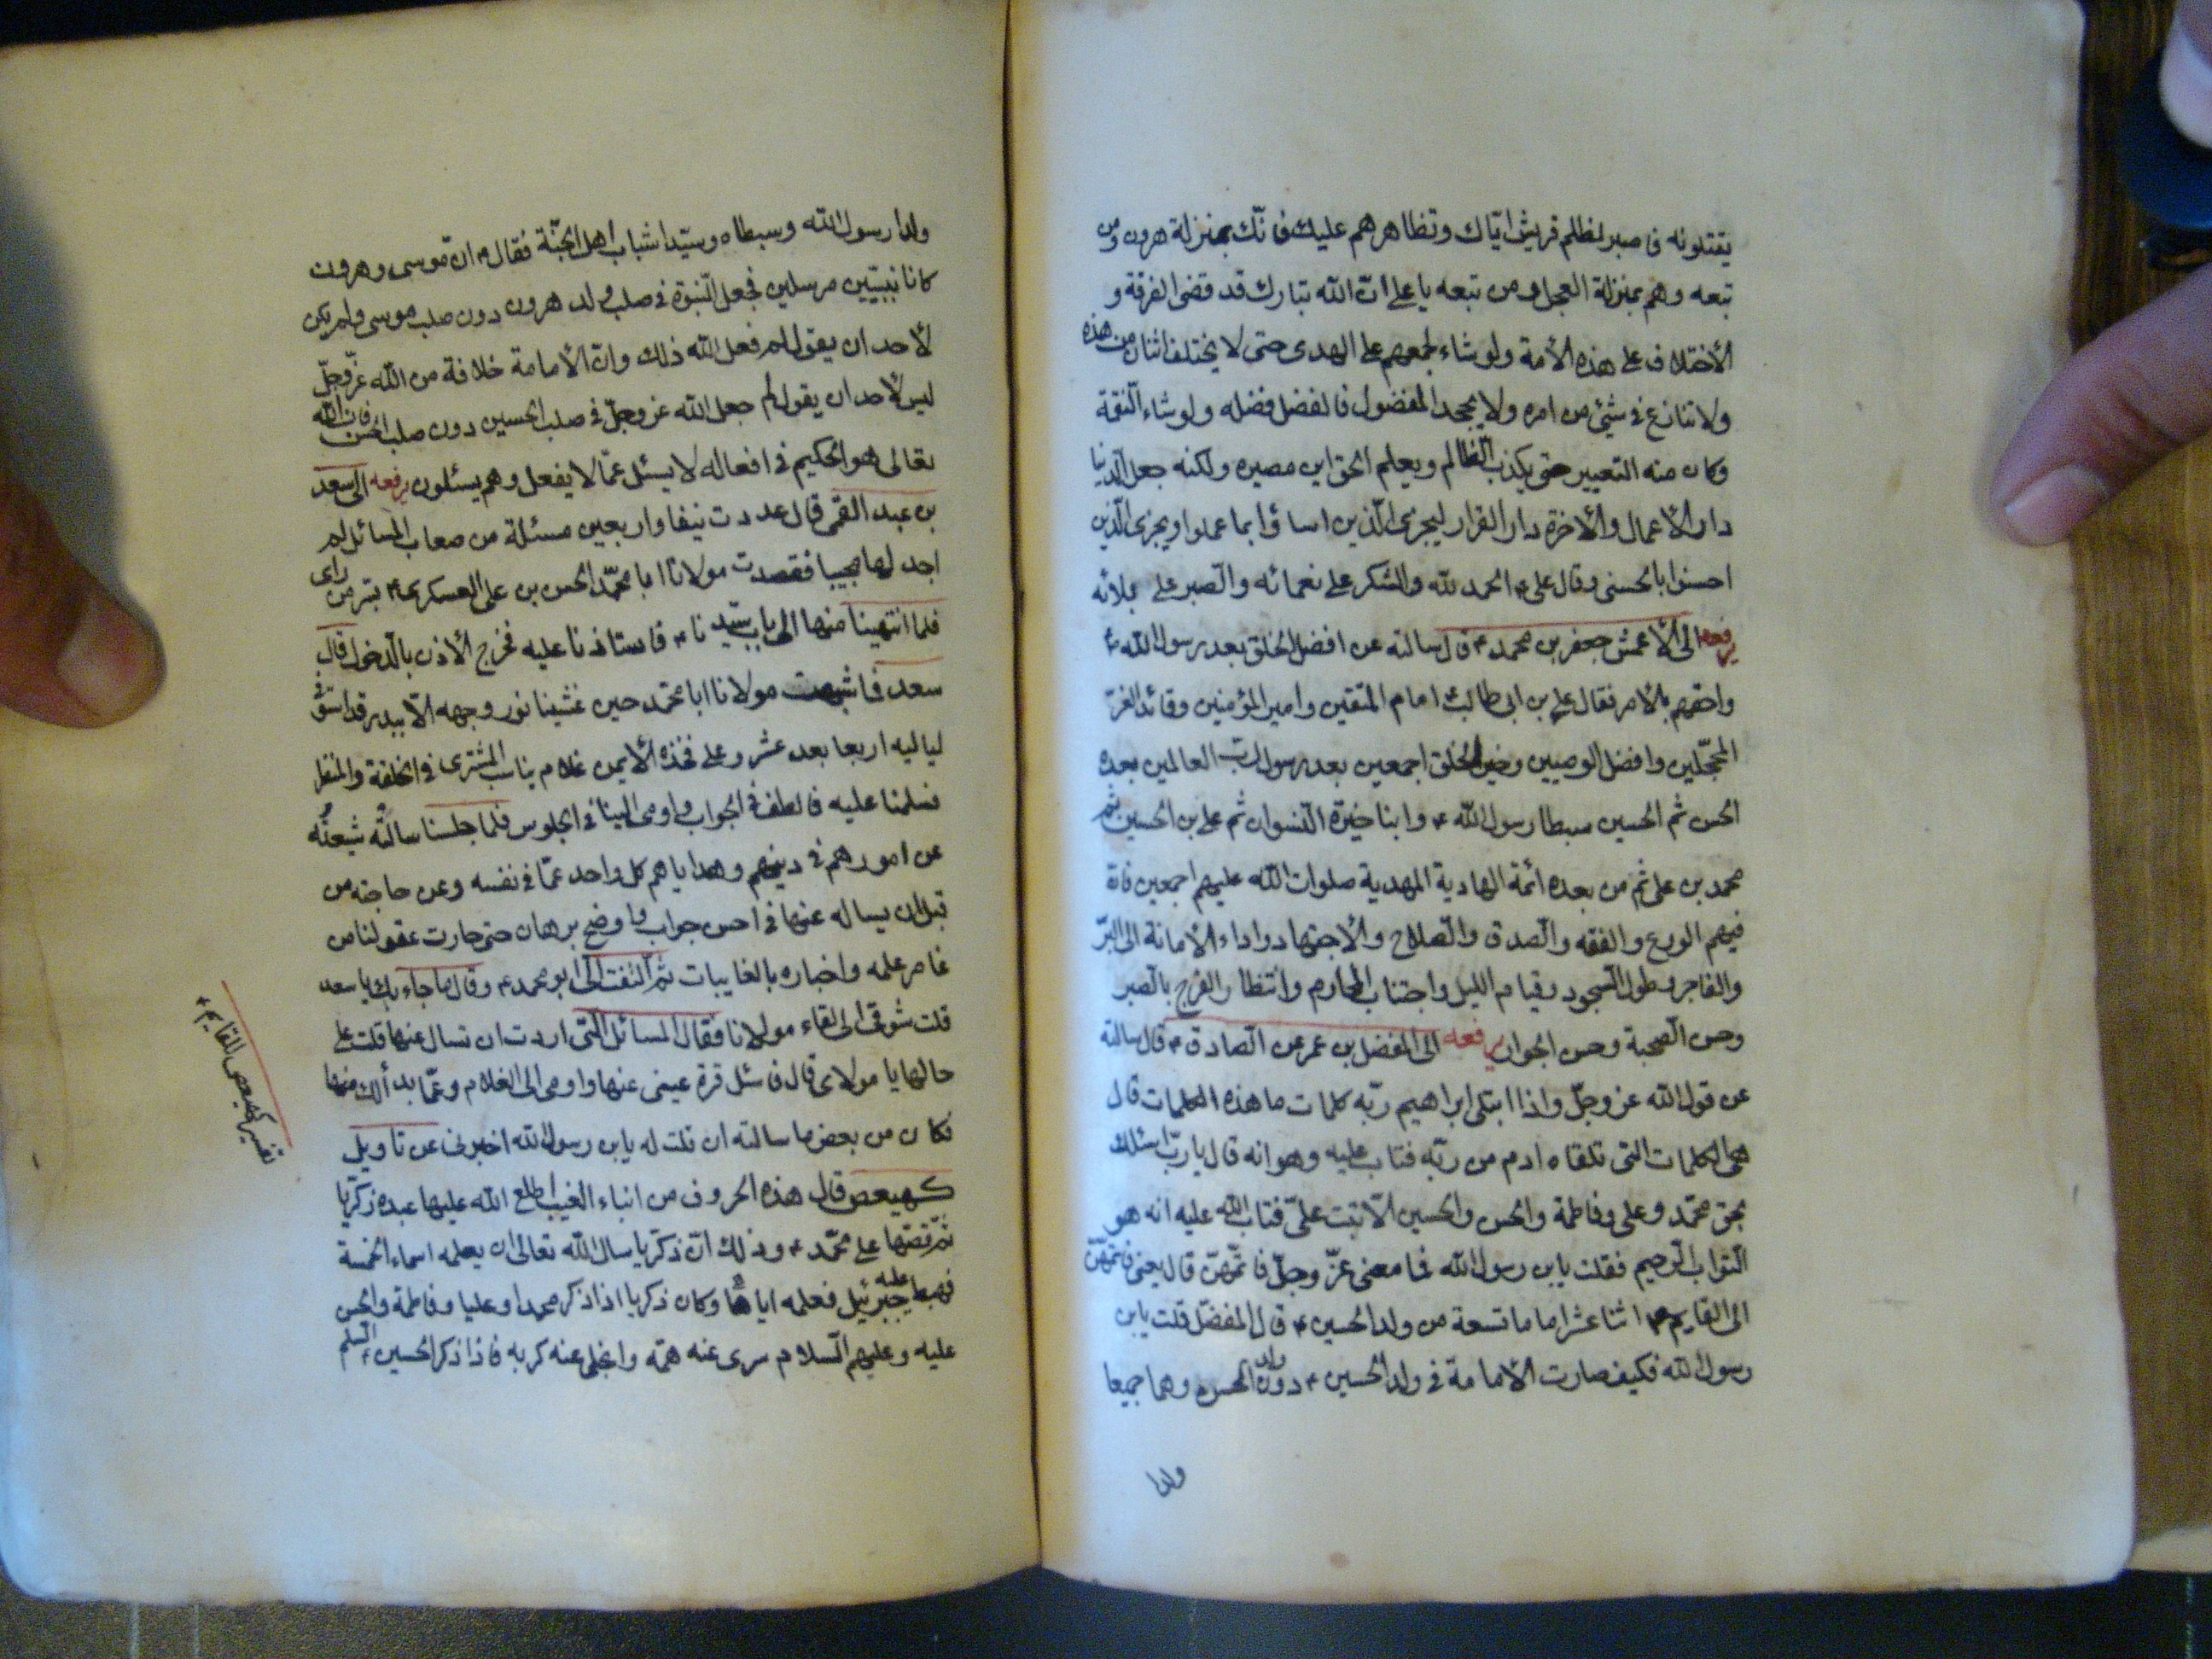 يقتلونه فاصبر لظلم قريش اياك وتظاهرهم عليك فانك بمنزلة هرون ومن
تبعه وهم بمنزلة العجل ومن تبعه يا على ان الله تبارك قد قضى الفرقة و
الأختلاف على هذه الأمة ولو شاء لجمعهم على الهدى حتى لا يختلف اثنان من هذه
ولا تنازع فى شئ من امره ولا يجحد المفضول فالفضل فضله ولو شاء النقمة
وكان منه التعيير حتى يكذب الظالم ويعلم الحق اين مصيره ولكنه جعل الدنيا
دار الأعمال والأخرة دار القرار ليجزى الذين اساؤا بما عملوا ويجزى الذين
احسنوا بالحسنى وقال على الحمد لله والشكر على نعمائه والصبر على بلائه
يرفعه الى الأعمش جعفر بن محمد قال سالته عن افضل الخلق بعد رسول الله
واحقهم بالأمر فقال على بن ابى طالب امام المتقين وامير المؤمنين وقائد الغر
المحجلين وافضل الوصيين وخير الخلق اجمعين بعد رسول رب العالمين بعده
الحسن ثم الحسين سبطا رسول الله وابنا خيرة النسوان ثم على بن الحسين ثم
محمد بن على ثم من بعده ائمة الهادية المهدية صلوات الله عليهم اجمعين فان
فيهم الورع والفقه والصدق والصلاح والأجتهاد واداء الأمانة الى البر
والفاجر وطول السجود وقيام الليل واجتناب المحارم وانتظار الفرج بالصبر
وحسن الصحبة وحسن الجوار يرفعه الى المفضل بن عمر عن الصادق قال سالته
عن قول الله عز وجل واذا ابتلى ابراهيم ربه كلمات ما هذه الكلمات قال
هى الكلمات التى تلقاه ادم من ربه فتاب عليه وهو انه قال يا رب اسئلك
بحق محمد وعلى وفاطمة والحسن والحسين الا تبت على فتاب الله عليه انه هو
التواب الرحيم فقلت يابن رسول الله فما معنى عز وجل فاتمهن قال يعنى فاتمهن
الى القايم اثنا عشر اماما تسعة من ولد الحسين قال المفضل قلت يابن
رسول الله فكيف صارت الأمامة فى ولد الحسين دون ولد الحسن وهما جميعا
ولدا
ولدا رسول الله وسبطاه وسيدا شباب اهل الجنة فقال ان موسى وهرون
كانا نبيين مرسلين فجعل النبوة فى صلب ولد هرون دون صلب موسى ولم يكن
لأحد ان يقول لم فعل الله ذلك وان الأمامة خلافة من الله عز وجل
ليس لأحد ان يقول لم جعل الله عز وجل فى صلب الحسين دون صلب الحسن فان الله
تعالى هو الحكيم فى افعاله لا يسئل عما لا يفعل وهم يسئلون يرفعه الى سعد
بن عبد القمى قال عددت نيفا واربعين مسئلة من صعاب المسائل لم
اجد لها مجيبا فقصدت مولانا ابا محمد الحسن بن على العسكرى بسر من راى
فلما انتهينا منها الى باب سيدنا فاستاذنا عليه فخرج الأذن بالدخول قال
سعد فما شبهت مولانا ابا محمد حين غشينا نور وجهه الا ببدر قد استوفى
لياليه اربعا بعد عشر وعلى فخذه الأيمن غلام يناسب المشترى فى الخلقة والمنظر
فسلمنا عليه فالطف فى الجواب واومى الينا فى الجلوس فلما جلسنا سالته شيعته
عن امورهم فى دينهم وهداياهم كل واحد عما فى نفسه وعن حاجته من
قبل ان يساله عنها فى احسن جواب واوضح برهان حتى حارت عقولنا من
غامر علمه واخباره بالغايبات ثم التفت الى ابو محمد وقال ما جاء بك يا سعد
قلت شوقى الى لقاء مولانا فقال المسائل التى اردت ان تسال عنها قلت على
حالها يا مولاى قال فاسئل قرة عينى عنها واومى الى الغلام وعما بدألك منها
فكان من بعض ما سالته ان قلت له يابن رسول الله اخبرنى عن تاويل
كهيعص قال هذه الحروف من انباء الغيب اطلع الله عليها عبده زكريا
ثم قصها على محمد وذلك ان ذكريا سال الله تعالى ان يعلمه اسماء الخمسة
فهبط عليه جبرئيل فعلمه اياها وكان ذكريا اذا ذكر محمدا وعليا وفاطمة والحسن
عليه وعليهم السلام سرى عنه همه وانجلى عنه كربه فاذا ذكر الحسين السلم
تفسير كهيعص للقايم